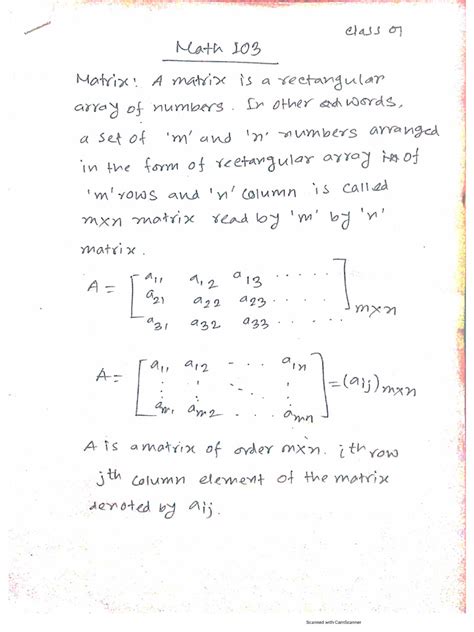 Class 01
Math 103
Matrix: A matrix is a rectangular
array of numbers. In other words,
a set of 'm' and 'n' numbers arranged
in the form of rectangular array of
'm' rows and 'n' column is called
m×n matrix read by 'm' by 'n'
matrix.
A = [ a11 a12 a13 ......
a21 a22 a23 ......
a31 a32 a33 ...... ] m×n
A = [ a11 a12 ... a1n
: : :
am1 am2 ... amn ] = (aij) m×n
A is a matrix of order m×n. ith row
jth column element of the matrix
denoted by aij.
Scanned with CamScanner